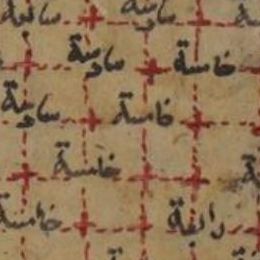 سابعة سادسة
سادسة خامسة
سادسة خامسة
خامسة
خامسة رابعة